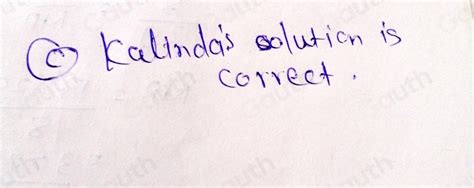 (c) Kalinda's solution is
correct.